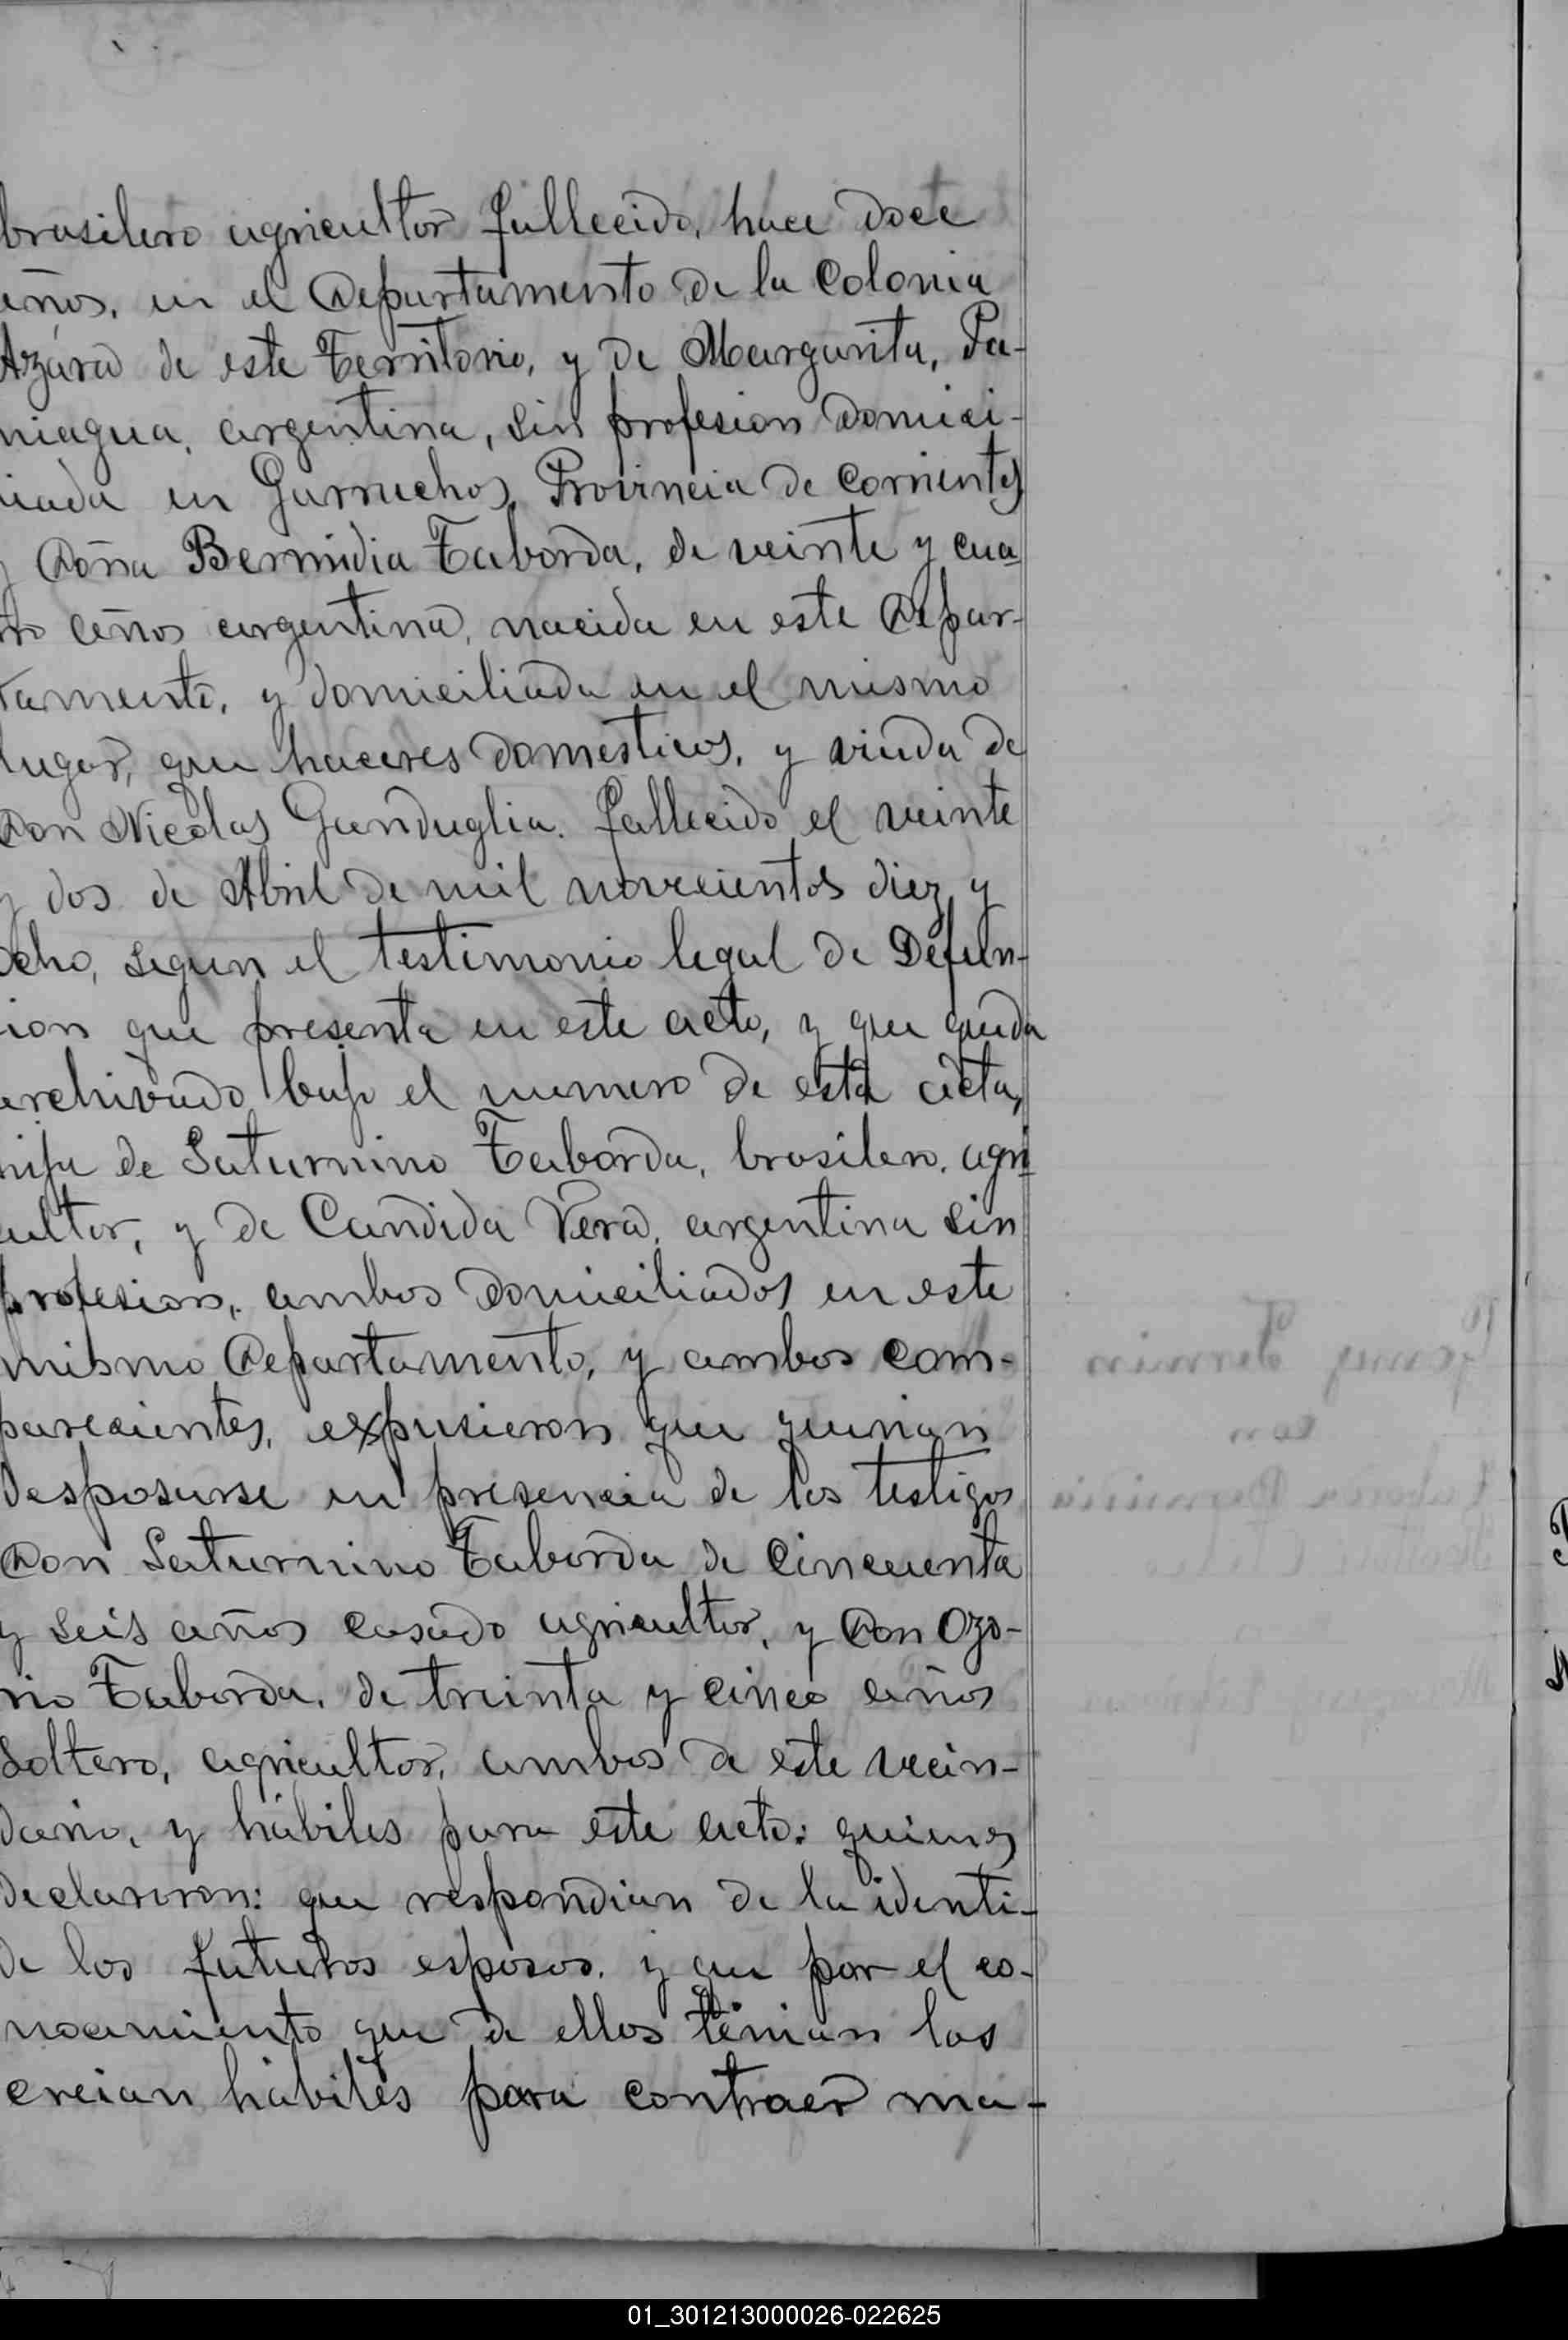 brasilero agricultor fallecido, hace doce
años, en el Departamento de la Colonia
Azára de este Territorio, y de Margarita, Pa-
niagua, argentina, sin profesion domici-
liada en Garruchos, Provincia de Corrientes
y Doña Bernidia Taborda, de veinte y cua
tro años argentina, nacida en este Depar-
tamento, y domiciliada en el mismo
lugar, que haceres domesticos, y viuda de
Don Nicolas Ganduglia. fallecido el veinte
y dos de Abril de mil novecientos diez y
ocho, segun el testimonio legal de Defun-
cion que presenta en este acto, y que queda
archivado bajo el numero de esta acta,
hija de Saturnino Taborda, brasilero, agri
cultor, y de Candida Vera, argentina sin
profesion, ambos domiciliados en este
mismo Departamento, y ambos com-
parecientes, expusieron que querian
desposarse en presencia de los testigos
Don Saturnino Taborda de cincuenta
y seis años casado agricultor, y Don Ozo-
rio Taborda, de treinta y cinco años
soltero, agricultor, ambos de este vecin-
dario, y hábiles para este acto: quienes
declararon: que respondian de la identi-
de los futuros esposos, y que por el co-
nocimiento que de ellos tenian los
creian hábiles para contraer ma-
01_301213000026-022625